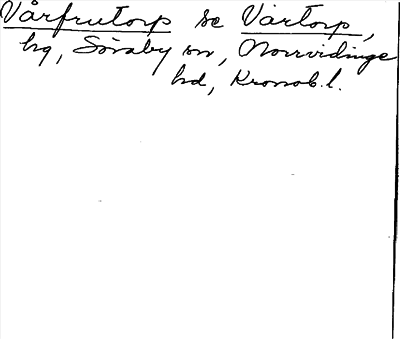 Vårfrutorp se Vårtorp,
hg, Söraby sn, Norrvidinge
hd, Kronob. l.